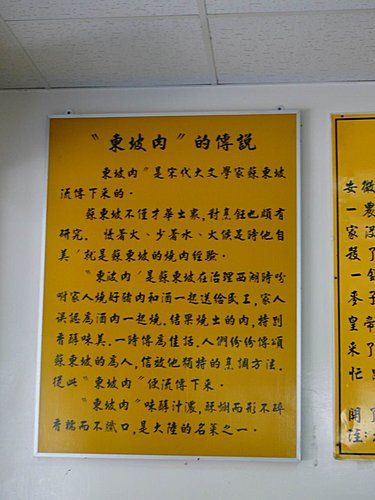 〝東坡肉〞的傳說
〝東坡肉〞是宋代大文學家蘇東坡
流傳下來的．
蘇東坡不僅才華出衆，對烹飪也頗有
研究． 慢著火、少著水、火候足時他自
美〞就是蘇東坡的燒肉經驗．
〝東波肉〞是蘇東坡在治理西湖時吩
咐家人燒好豬肉和酒一起送給民工，家人
誤認為酒肉一起燒．結果燒出的肉，特別
香醇味美．一時傳為佳話．人們份份傳頌
蘇東坡的為人，信放他獨特的烹調方法．
從此〝東坡肉〞便流傳下來．
〝東坡肉〞味醇汁濃，酥爛而形不碎
香糯而不膩口，是大陸的名菜之一．
安徽
一農
家沒
殺了
一鍋
麥子
皇帝
采了
忙里
開了
注：